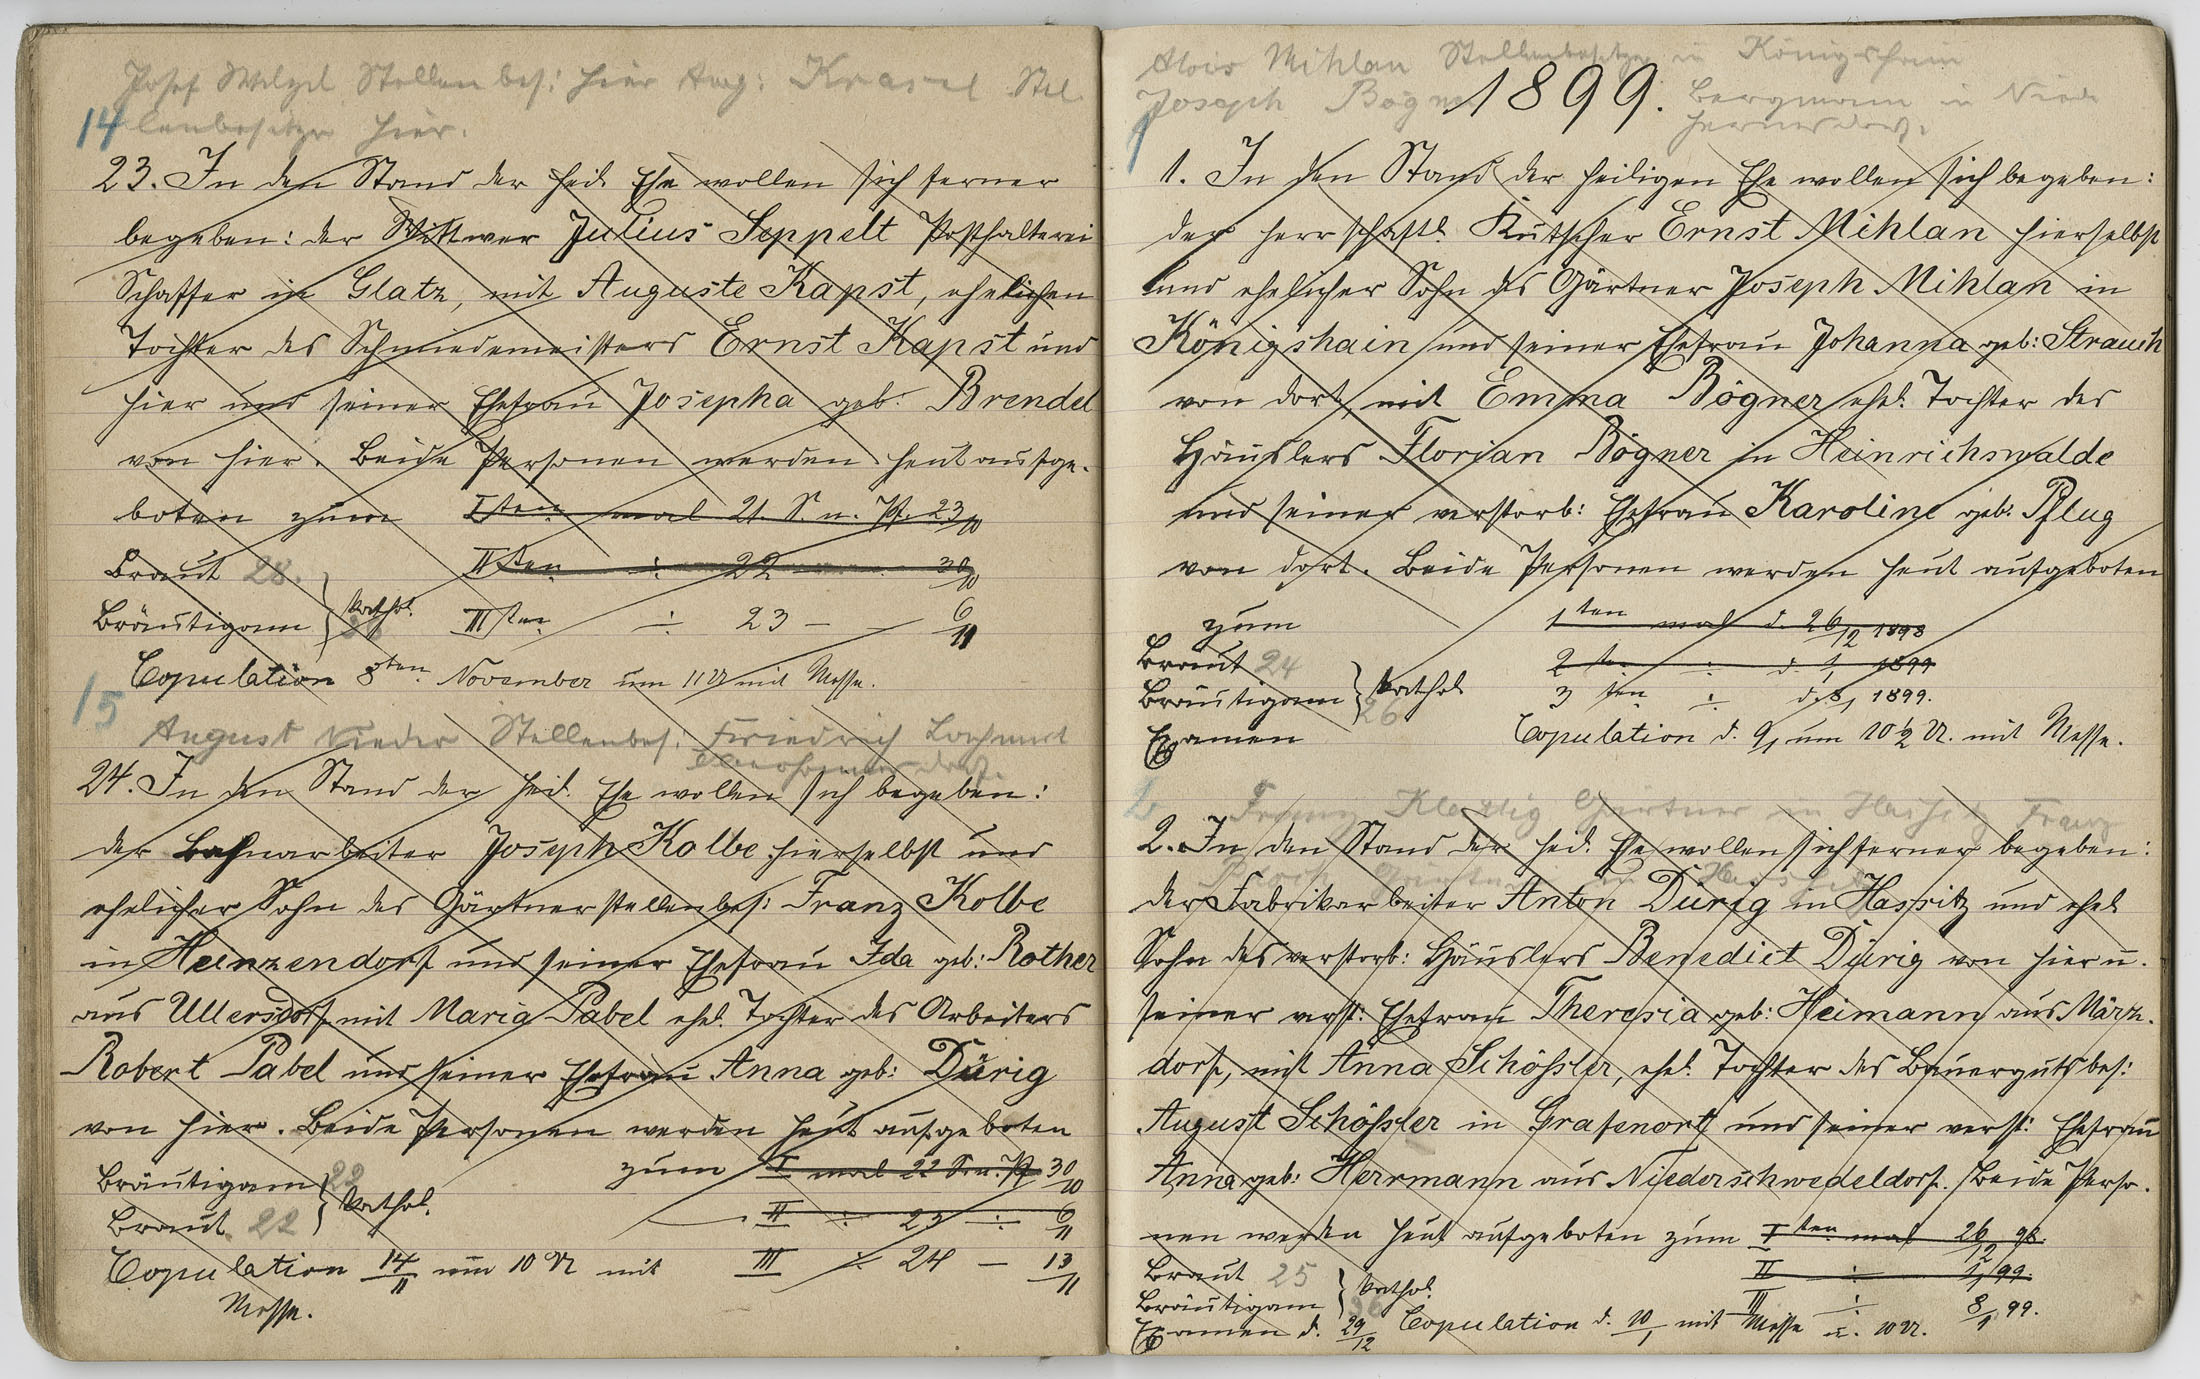 Josef Welzel Stellenbes: hier Aug: Krasel Stel
14 lenbesitzer hier.
23. In den Stand der heil. Ehe wollen sich ferner
begeben: der Wittwer Julius Seppelt Posthalterei
Schaffer in Glatz, mit Auguste Kapst, ehelichen
Tochter des Schmiedemeisters Ernst Kapst und
hier und seiner Ehefrau Josepha geb: Brendel
von hier. Beide Personen werden heut aufge-
boten zum Iten mal 21. S. n. Pf. 23/10
Braut 28. IIten ÷ 22 30/10
Bräutigam kathol. IIIten ÷ 23 – – 6/11
Copulation 8ten November um 11 U mit Messe.
15
August Nieder Stellenbes: Friedrich
24. In den Stand der heil. Ehe wollen sich begeben:
der Bahnarbeiter Joseph Kolbe hierselbst und
ehelicher Sohn des Gärtnerstellenbes: Franz Kolbe
in Heinzendorf und seiner Ehefrau Ida geb: Rother
aus Ullersdorf mit Maria Pabel ehel. Tochter des Arbeiters
Robert Pabel und seiner Ehefrau Anna geb: Dürig
von hier. Beide Personen werden heut aufgeboten
Bräutigam 22 zum I mal 22 S. n. Pf. 30/10
Braut 22 kathol. II ÷ 23 ÷ 6/11
Copulation 14/11 um 10 U mit III ÷ 24 – 13/11
Messe.
Alois Mihlan Stellenbesitzer in Königshain
1899.
Joseph Bögner Bergmann in Niede
1 hermsdorf.
1. In den Stand der heiligen Ehe wollen sich begeben:
der herrschaftl. Kutscher Ernst Mihlan hierselbst
und ehelicher Sohn des Gärtner Joseph Mihlan in
Königshain und seiner Ehefrau Johanna geb: Strauch
von dort, mit Emma Bögner ehel. Tochter des
Häuslers Florian Bögner in Heinrichswalde
und seiner verstorb: Ehefrau Karoline geb. Pflug
von dort. Beide Personen werden heut aufgeboten
zum 1ten mal d. 26/12 1898
Braut 24 2ten ÷ d. 1/1 1899
Bräutigam 26 kathol. 3ten ÷ d. 8/1 1899.
Examen Copulation d. 9/1 um 10 ½ U. mit Messe.
2 Franz Klettig Gärtner in Hassitz Franz
2. In den Stand der heil. Ehe wollen sich ferner begeben:
Gärtner in Hassitz
der Fabrikarbeiter Anton Dürig in Hassitz und ehel.
Sohn des verstorb: Häuslers Benedict Dürig von hier u.
seiner verst: Ehefrau Theresia geb: Heimann aus März-
dorf, mit Anna Schößler, ehel. Tochter des Bauergutsbes:
August Schößler in Grafenort und seiner verst: Ehefrau
Anna geb: Herrmann aus Niederschwedeldorf. Beide Perso-
nen werden heut aufgeboten zum Iten mal 26/12 98.
Braut 25 II ÷ 1/1 99.
Bräutigam 36 kathol. III ÷ 8/1 99.
Examen d. 29/12 Copulation d. 10/1 mit Messe u. 10 U.